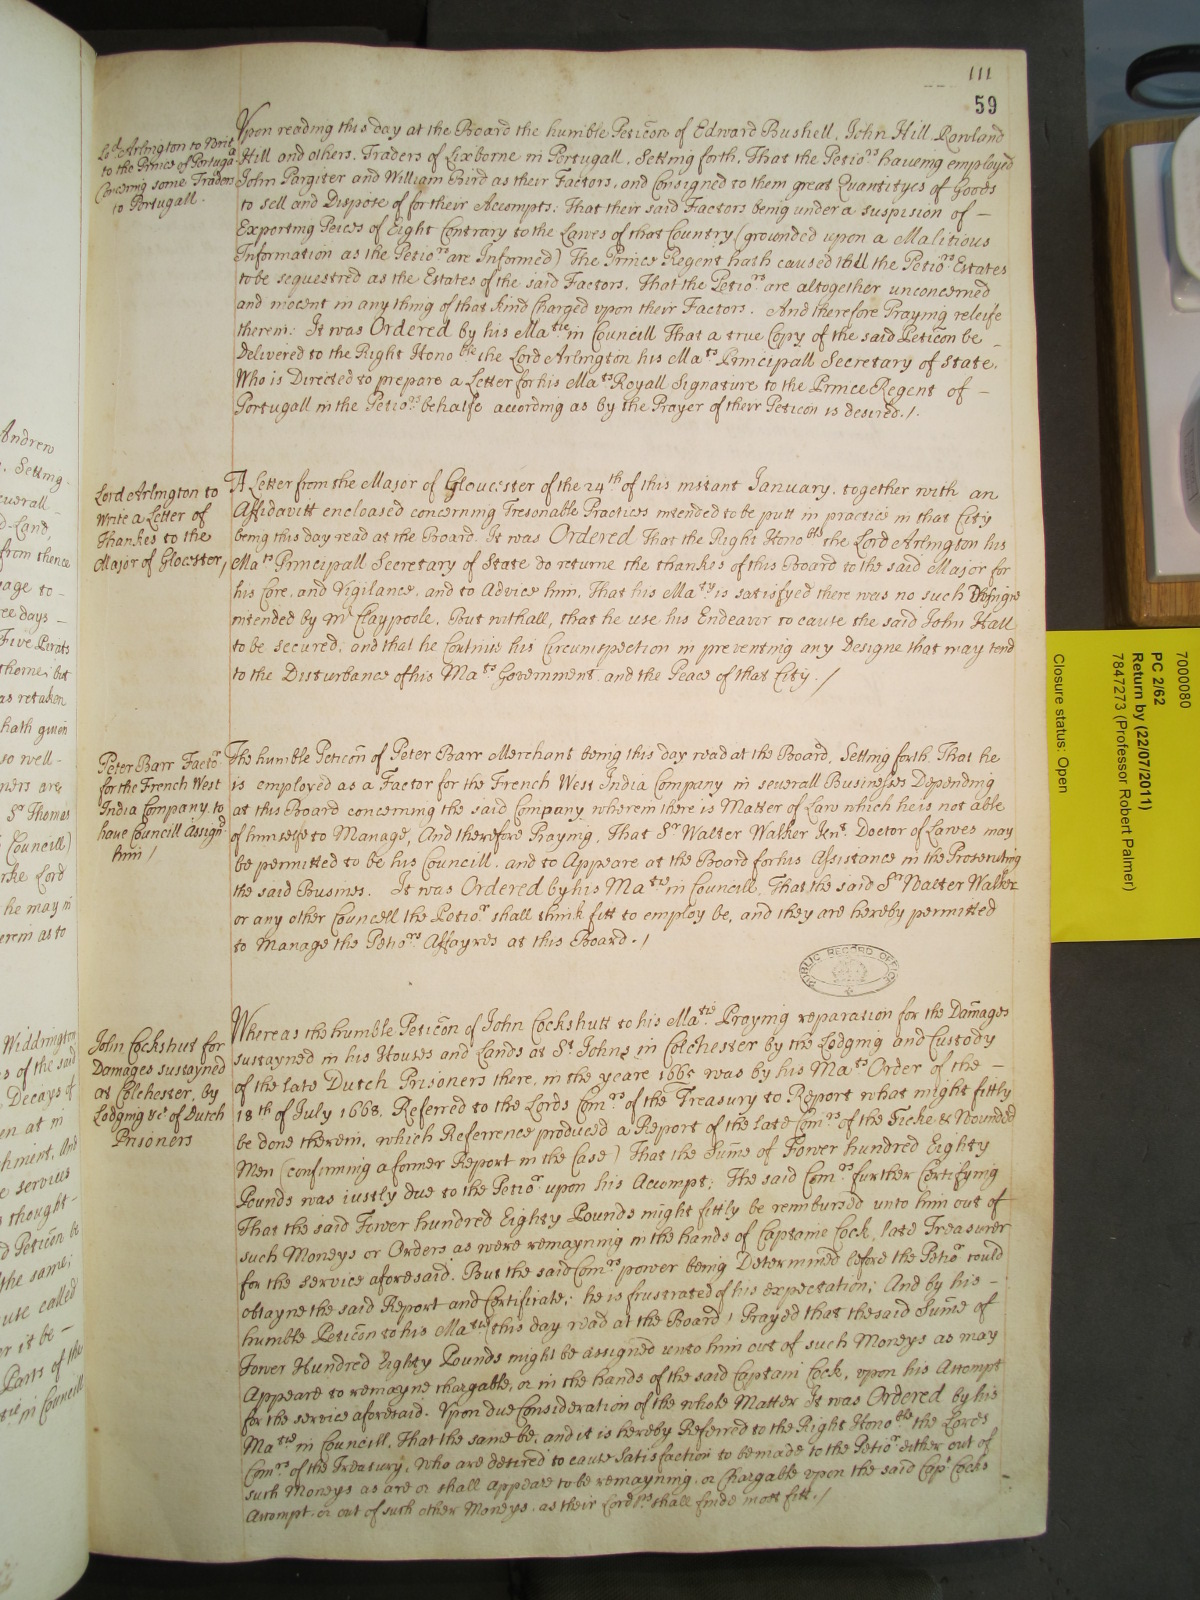 111
59
Lod Arlington to Write
to the Prince of Portugal
Concerning some Traders
to Portugall.
Vpon reading this day at the Board the humble Peticõn of Edward Bushell, John Hill Rowland
Hill and others, Traders of Lixborne in Portugall, Setting forth, That the Petiors haueing employed
John Pargiter and William Bird as their Factors, and Consigned to them great Quantityes of Goods
to sell and Dispose of for their Accompts; That their said Factors being under a suspision of –
Exporting Peices of Eight Contrary to the Lawes of that Country (grounded upon a Malitious
Information as the Petiors are Informed) The Prince Regent hath caused all the Petiors Estates
to be sequestred as the Estates of the said Factors, That the Petiors are altogether unconcerned
and inocent in any thing of that kind Charged upon their Factors. And therefore Praying releife
therein: It was Ordered by his Matie in Councill That a true Copy of the said Peticõn be –
Delivered to the Right Honoble the Lord Arlington his Mats Principall Secretary of State,
Who is Directed to prepare a Letter for his Mats Royall Signature to the Prince Regent of –
Portugall in the Petiors behalfe according as by the Prayer of their Peticon is desired./.
Lord Arlington to
Write a Letter of
Thankes to the
Major of Glocester/
A Letter from the Major of Gloucester of the 24th of this instant January, together with an
Affidavitt encloased concerning Tresonable Practices intended to be putt in practice in that City
being this day read at the Board. It was Ordered That the Right Honoble the Lord Arlington his
Mats Principall Secretary of State do returne the thankes of this Board to the said Major for
his Care, and Vigilance, and to Advice him, That his Maty is satisfyed there was no such Designe
intended by Mr Claypoole, But withall, that he use his Endeavor to cause the said John Hall
to be secured, and that he Continue his Circumspection in preventing any Designe that may tend
to the Disturbance of his Mats Government and the Peace of that City./
Peter Barr Factor
for the French West
India Company to
have Councill Assignd
him/
The humble Peticõn of Peter Barr Merchant being this day read at the Board, Setting forth That he
is employed as a Factor for the French West India Company in severall Businesses Depending
at this Board concerning the said Company wherein there is Matter of Law which he is not able
of himselfe to Manage, And therefore Praying, That Sr Walter Walker Knt. Doctor of Lawes may
be permitted to be his Councill, and to Appeare at the Board for his Assistance in the Prosecuting
the said Busines. It was Ordered by his Matie in Councill, That the said Sr Walter Walker
or any other Councell the Petior shall think fitt to employ be, and they are hereby permitted
to Manage the Petiors Affayres at this Board./
PUBLIC RECORD OFFICE
John Cockshut for
Damages sustayned
at Colchester, by
Lodging &c of Dutch
Prisoners
Whereas the humble Peticõn of John Cockshutt to his Matie Praying reparation for the Damages
sustayned in his Houses and Lands at St Johns in Colchester by the Lodging and Custody
of the late Dutch Prisoners there, in the yeare 1665 was by his Mats Order of the –
18th of July 1668. Referred to the Lords Comrs of the Treasury to Report what might fittly
be done therein, which Referrence produced a Report of the late Comrs of the Sicke & Wounded
Men (confirming a former Report in the Case) That the Sume of Fower hundred Eighty
Pounds was iustly due to the Petior upon his Accompt; The said Comrs further Certifying
That the said Fower hundred Eighty Pounds might fittly be reimbursed unto him out of
such Moneys or Orders as were remayning in the hands of Captaine Cock, late Treasurer
for the service aforesaid. But the said Comrs power being Determined before the Petior could
obtayne the said Report and Certificate; he is frustrated of his expectation; And by his –
humble Peticõn to his Matie (this day read at the Board) Prayed that the said Sume of
Fower Hundred Eighty Pounds might be assigned unto him out of such Moneys as may
Appeare to remayne chargable, or in the hands of the said Captain Cock, upon his Accompt
for the service aforesaid. Vpon due Consideration of the whole Matter It was Ordered by his
Matie in Councill, That the same be, and it is hereby Referred to the Right Honoble the Lords
Comrs of the Treasury, Who are desired to cause Satisfaction to be made to the Petior either out of
such Moneys as are or shall Appeare to be remayning, or Chargable upon the said Capt Cocks
Accompt, or out of such other Moneys, as their Lordps shall finde most fitt./
Andrew
Setting
severall
Land,
from thence
days –
Five
but
as retaken
hath giuen
so well –
are
Sr Thomas
Councill)
Lord
he may in
as to
Widdrington
of the said
Decays of
at in
thought
Peticõn be
the same;
called
it be –
Parts of the
in Councill
7000080
PC 2/62
Return by (22/07/2011)
7847273 (Professor Robert Palmer)
Closure status: Open